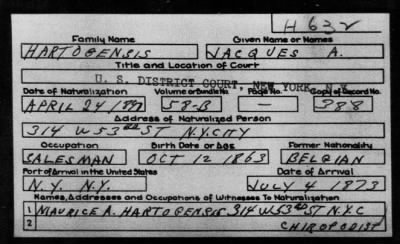 H632
Family Name Given Name or Names
HARTOGENSIS JACQUES A.
Title and Location of Court
U. S. DISTRICT COURT, NEW YORK, N.Y.
Date of Naturalization Volume or Bundle No. Page No. Copy of Record No.
APRIL 24 1897 58-B — 388
Address of Naturalized Person
314 W 53RD ST N.Y.CITY
Occupation Birth Date or Age Former Nationality
SALESMAN OCT 12 1863 BELGIAN
Port of Arrival in the United States Date of Arrival
N.Y. N.Y. JULY 4 1873
Names, Addresses and Occupations of Witnesses To Naturalization
1 MAURICE A. HARTOGENSIS 314 W 53RD ST N.Y.C
2 CHIROPODIST